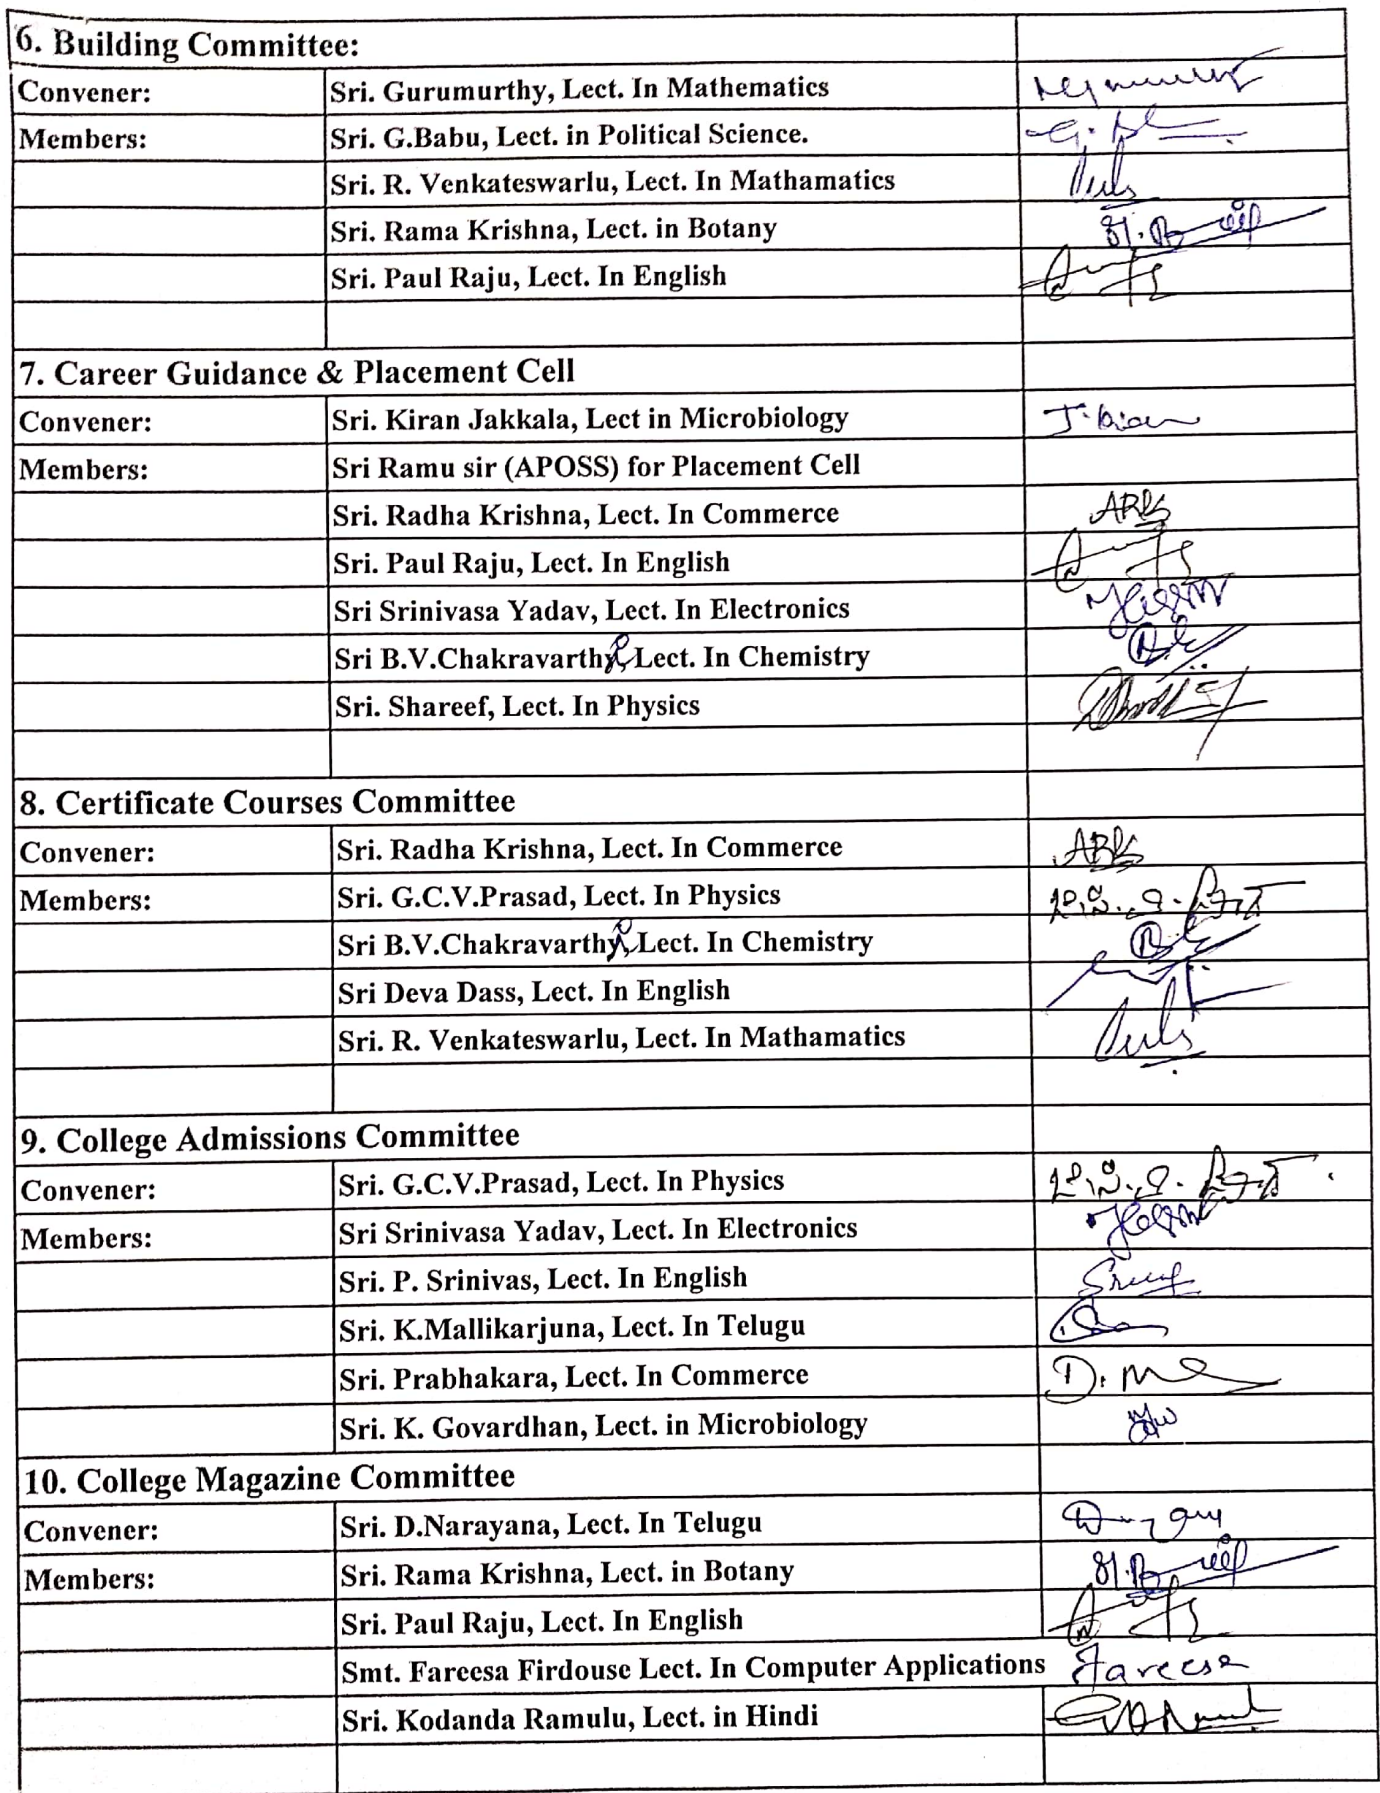 6. Building Committee:
Convener: Sri. Gurumurthy, Lect. In Mathematics
Members: Sri. G.Babu, Lect. in Political Science.
Sri. R. Venkateswarlu, Lect. In Mathamatics
Sri. Rama Krishna, Lect. in Botany
Sri. Paul Raju, Lect. In English
7. Career Guidance & Placement Cell
Convener: Sri. Kiran Jakkala, Lect in Microbiology J. Kiran
Members: Sri Ramu sir (APOSS) for Placement Cell
Sri. Radha Krishna, Lect. In Commerce ARK
Sri. Paul Raju, Lect. In English
Sri Srinivasa Yadav, Lect. In Electronics
Sri B.V.Chakravarthy, Lect. In Chemistry
Sri. Shareef, Lect. In Physics
8. Certificate Courses Committee
Convener: Sri. Radha Krishna, Lect. In Commerce ARK
Members: Sri. G.C.V.Prasad, Lect. In Physics
Sri B.V.Chakravarthy, Lect. In Chemistry
Sri Deva Dass, Lect. In English
Sri. R. Venkateswarlu, Lect. In Mathamatics
9. College Admissions Committee
Convener: Sri. G.C.V.Prasad, Lect. In Physics
Members: Sri Srinivasa Yadav, Lect. In Electronics
Sri. P. Srinivas, Lect. In English
Sri. K.Mallikarjuna, Lect. In Telugu
Sri. Prabhakara, Lect. In Commerce
Sri. K. Govardhan, Lect. in Microbiology
10. College Magazine Committee
Convener: Sri. D.Narayana, Lect. In Telugu
Members: Sri. Rama Krishna, Lect. in Botany
Sri. Paul Raju, Lect. In English
Smt. Fareesa Firdouse Lect. In Computer Applications Fareesa
Sri. Kodanda Ramulu, Lect. in Hindi